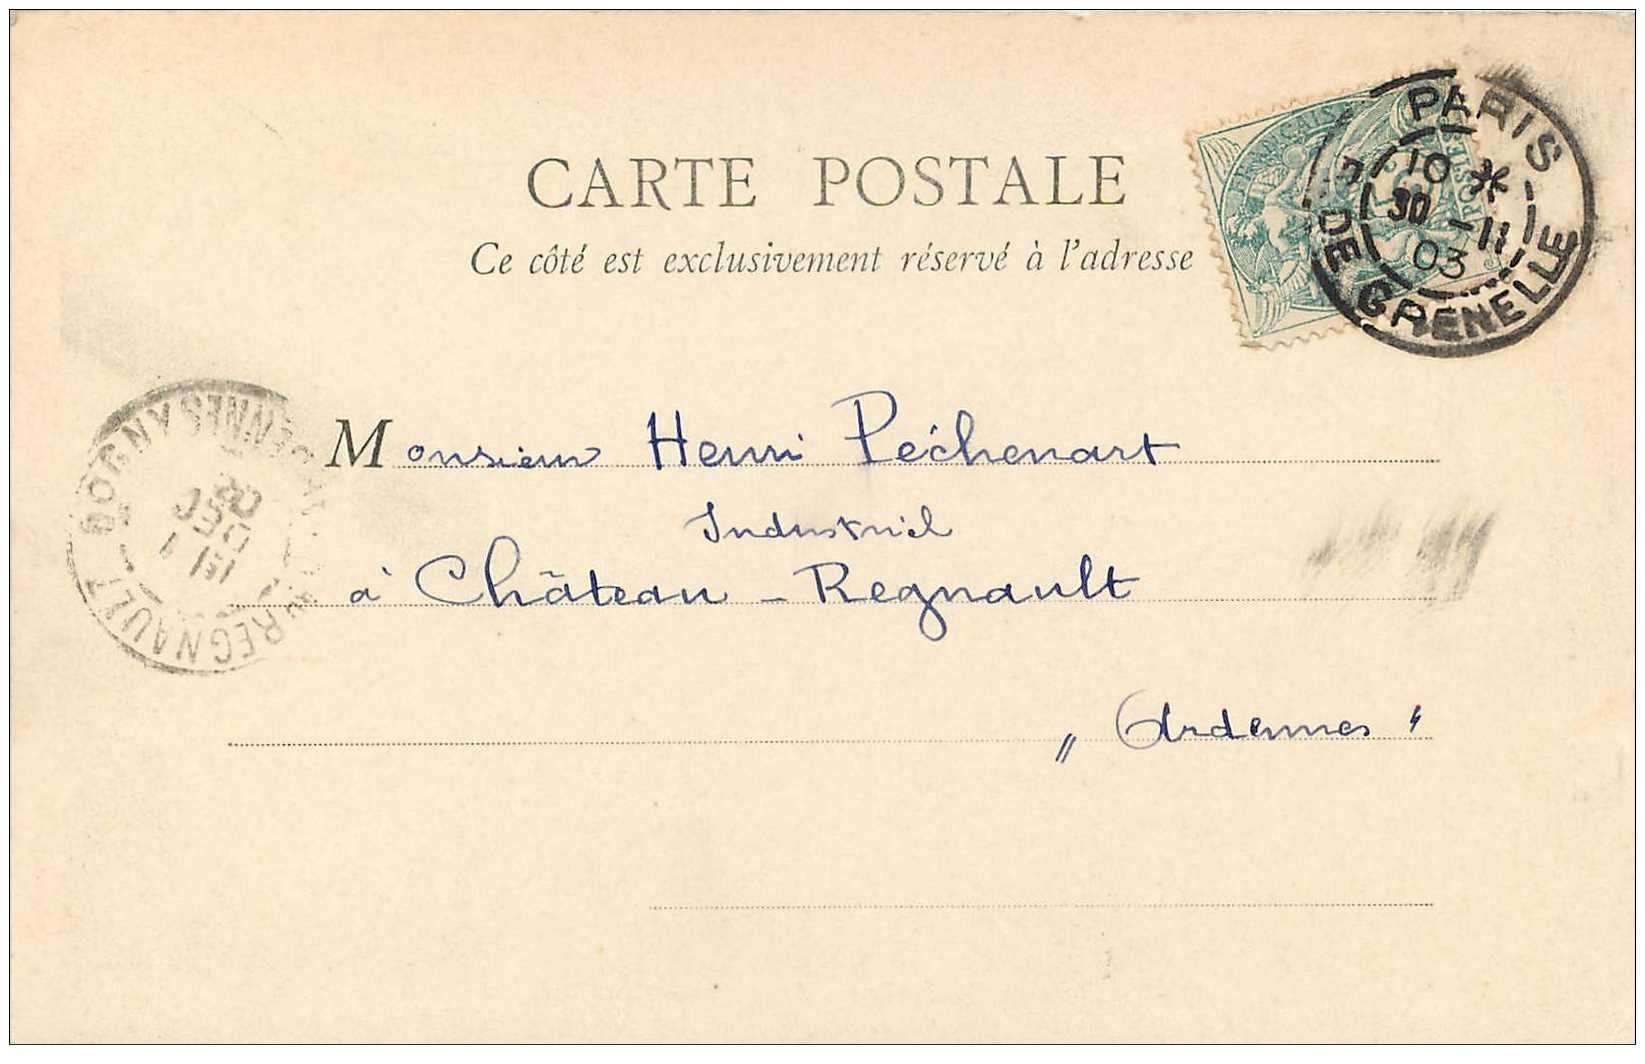 CARTE POSTALE
Ce côté est exclusivement réservé à l'adresse
PARIS
10 *
30 -11
03
R. DE GRENELLE
FRANÇAISE
POSTES
Monsieur Henri Péchenart
Industriel
à Château - Regnault
„ Ardennes "
BOGNY
REGNAULT
DEC
03